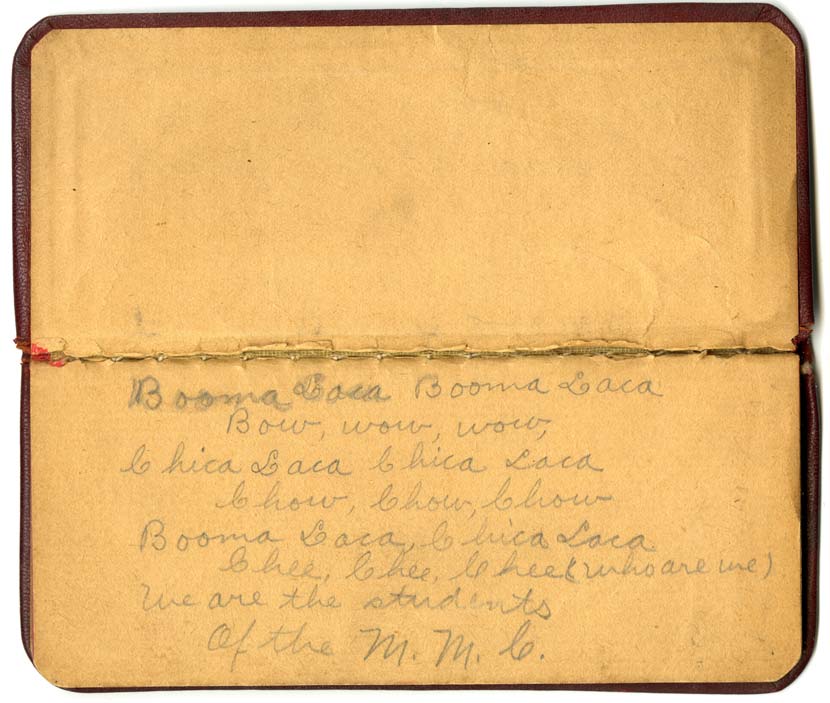 Booma Laca Booma Laca
Bow, wow, wow,
Chica Laca Chica Laca
Chow, Chow, Chow
Booma Laca, Chica Laca
Chee, Chee, Chee (who are we)
We are the students
Of the M. M. C.